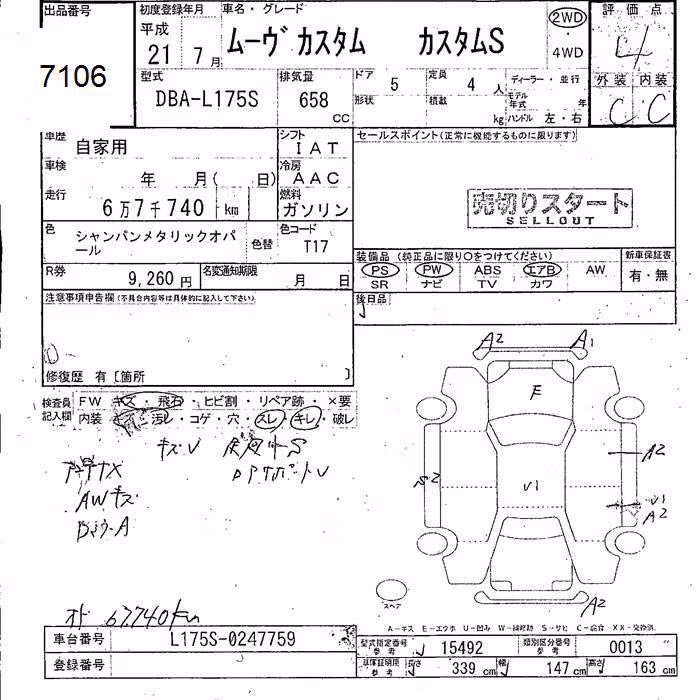 出品番号 初度登録年月 車名・グレード 評価点
7106 平成 21 7月 ムーヴ カスタム カスタムS 2WD ・ 4WD 4
型式 DBA-L175S 排気量 658 CC ドア 5 定員 4 人 ディーラー・並行 外装 内装
形状 積載 kg モデル年式 年 ハンドル 左・右 C C
車歴 自家用 シフト IAT セールスポイント(正常に機能するものに限ります)
車検 年 月( 日) 冷房 AAC
走行 6万7千740 km 燃料 ガソリン 売切りスタート
SELLOUT
色 シャンパンメタリックオパール 色替 色コード T17
装備品 (純正品に限り○をつけてください) 新車保証書
R券 9,260円 名変通知期限 月 日 PS PW ABS エアB AW 有・無
SR ナビ TV カワ
注意事項申告欄(不具合内容等は具体的に記入して下さい) 後日品
修復歴 有 〔箇所 〕
A2 A1
F
検査員記入欄 FW キズ・飛石・ヒビ割・リペア跡・×要
内装 キズ・汚レ・コゲ・穴・スレ・キレ・破レ
キズV
A2
S2 V1 V1
A2
AWキズ
オド 67,740km
スペア A2
A-キズ E-エクボ U-凹み W-補修跡 S-サビ C-腐食 XX-交換済
車台番号 L175S-0247759 型式指定番号 参考 15492 類別区分番号 参考 0013
登録番号 車庫証明用 参考 長さ 339 cm 幅 147 cm 高さ 163 cm